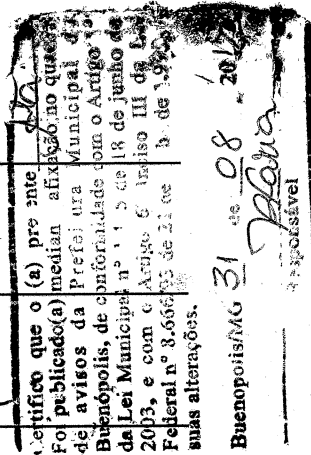 Certifico que o (a) pre ente
Foi publicado(a) median afixação no quadro
de avisos da Prefei ura Municipal d
Buenópolis, de conformidade com o Artigo
da Lei Municipal nº 1 1 5 de 18 de junho de
2003, e com o Artigo 6 Inciso III da Lei
Federal nº 8.666/93 de 21 de de
suas alterações.
Buenopolis/MG 31 de 08
Responsável